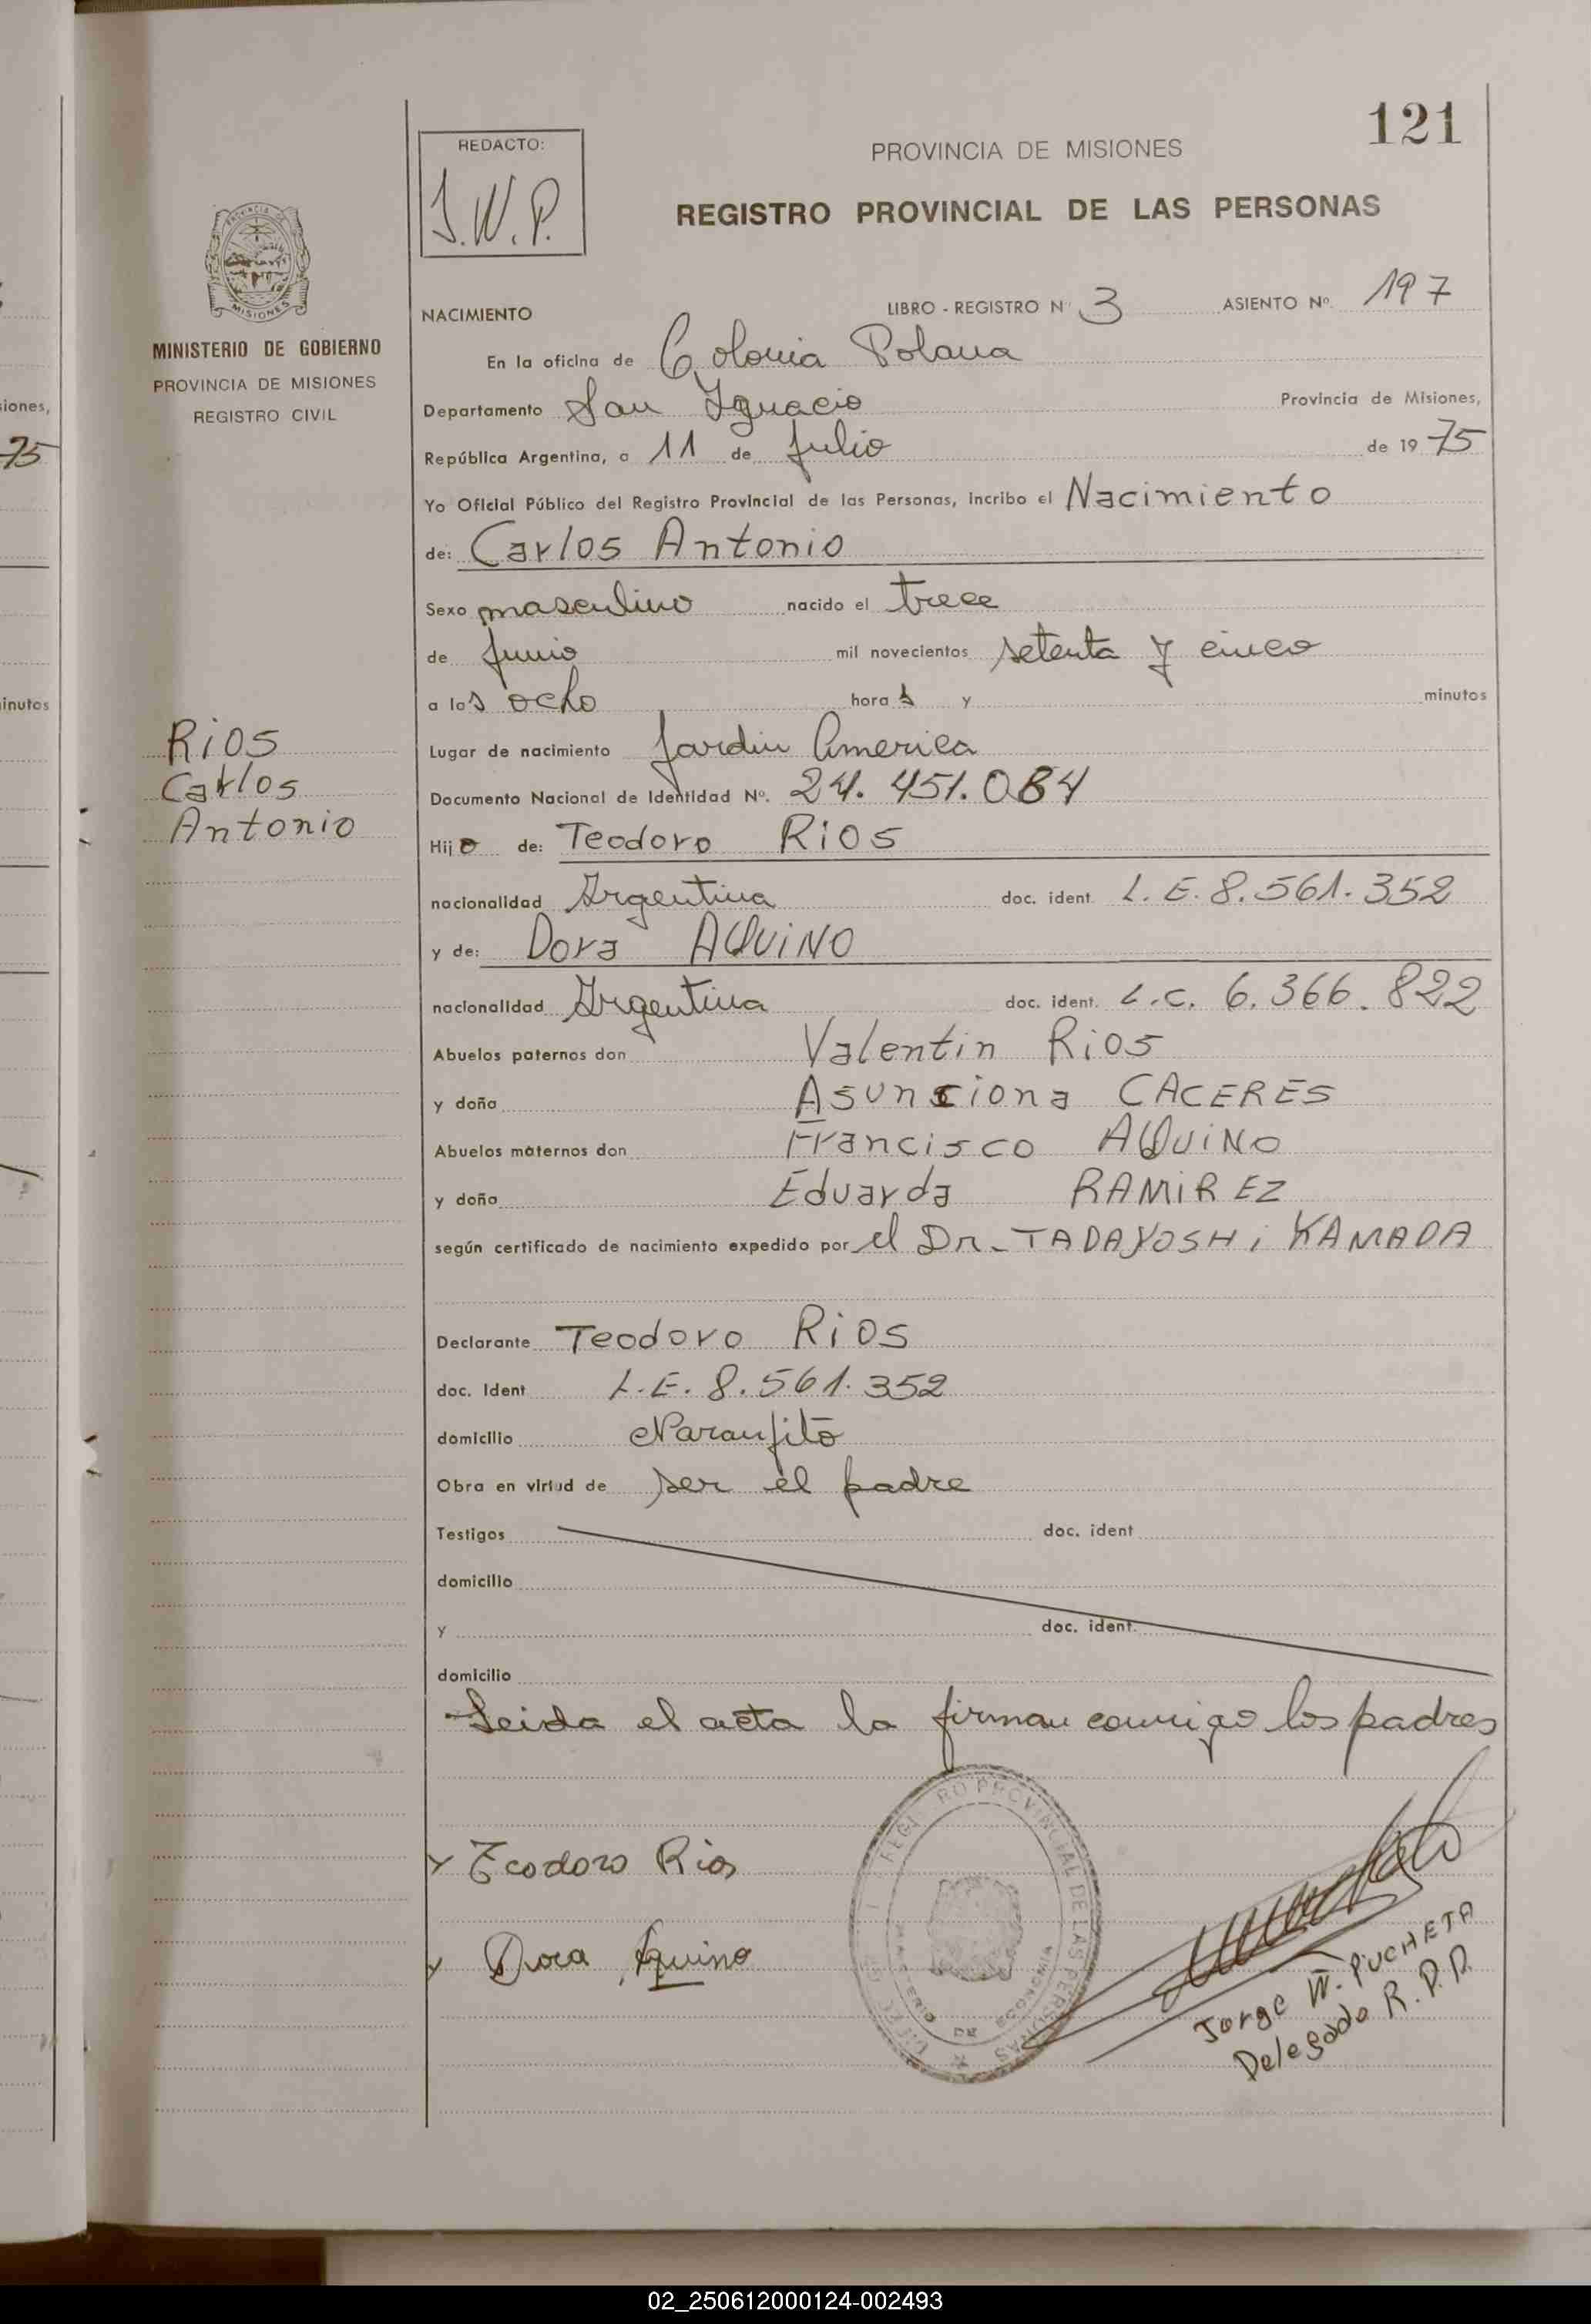 121
REDACTO:
J.W.P.
PROVINCIA DE MISIONES
REGISTRO PROVINCIAL DE LAS PERSONAS
MISIONES
MINISTERIO DE GOBIERNO
PROVINCIA DE MISIONES
REGISTRO CIVIL
siones,
75
inutos
NACIMIENTO LIBRO - REGISTRO N° 3 ASIENTO Nº. 197
En la oficina de Colonia Polana
Departamento San Ignacio Provincia de Misiones,
República Argentina, a 11 de Julio de 19 75
Yo Oficial Público del Registro Provincial de las Personas, incribo el Nacimiento
de: Carlos Antonio
Sexo masculino nacido el trece
de Junio mil novecientos setenta y cinco
a las ocho horas y minutos
Rios
Carlos
Antonio
Lugar de nacimiento Jardin America
Documento Nacional de Identidad Nº. 24.451.084
Hijo de: Teodoro Rios
nacionalidad Argentina doc. ident. L.E.8.561.352
y de: Dora AQUiNO
nacionalidad Argentina doc. ident. L.C. 6.366.822
Abuelos paternos don Valentin Rios
y doña Asunciona CACERES
Abuelos maternos don Francisco AQUiNO
y doña Eduarda RAMiREZ
según certificado de nacimiento expedido por el Dr. TADAYOSHi KAMADA
Declarante Teodoro Rios
doc. Ident L.E. 8.561.352
domicilio Naranjito
Obra en virtud de ser el padre
Testigos doc. ident
domicilio
y doc. ident.
domicilio
Leida el acta la firman conmigo los padres
Teodoro Rios
Dora Aquino
REGISTRO PROVINCIAL DE LAS PERSONAS
MINISTERIO DE GOBIERNO
Jorge W. PUCHETA
Delegado R.P.P.
02_250612000124-002493